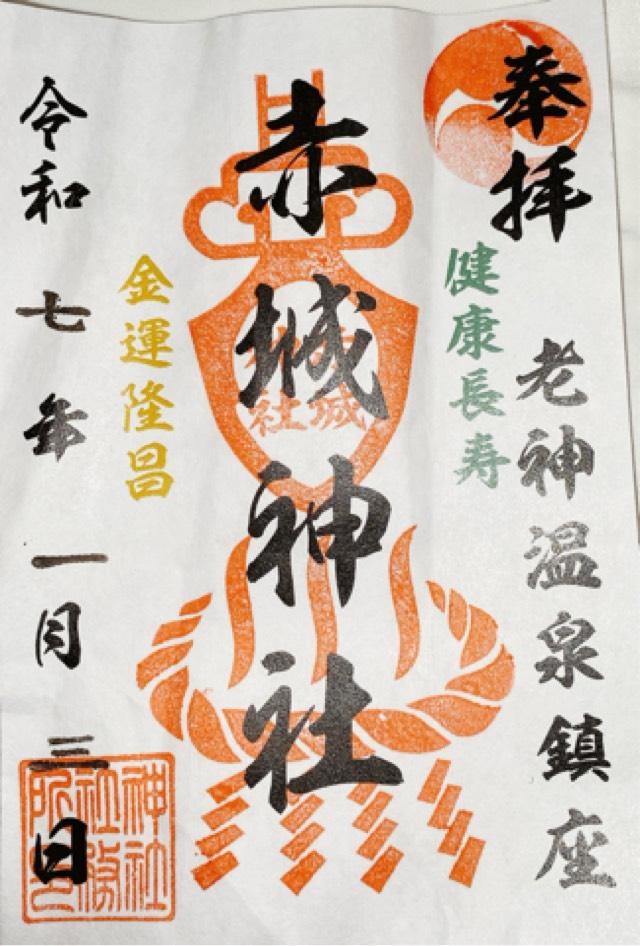 奉拝
老神温泉鎮座
健康長寿
赤城神社
金運隆昌
令和七年一月三日
神社
社務
所印